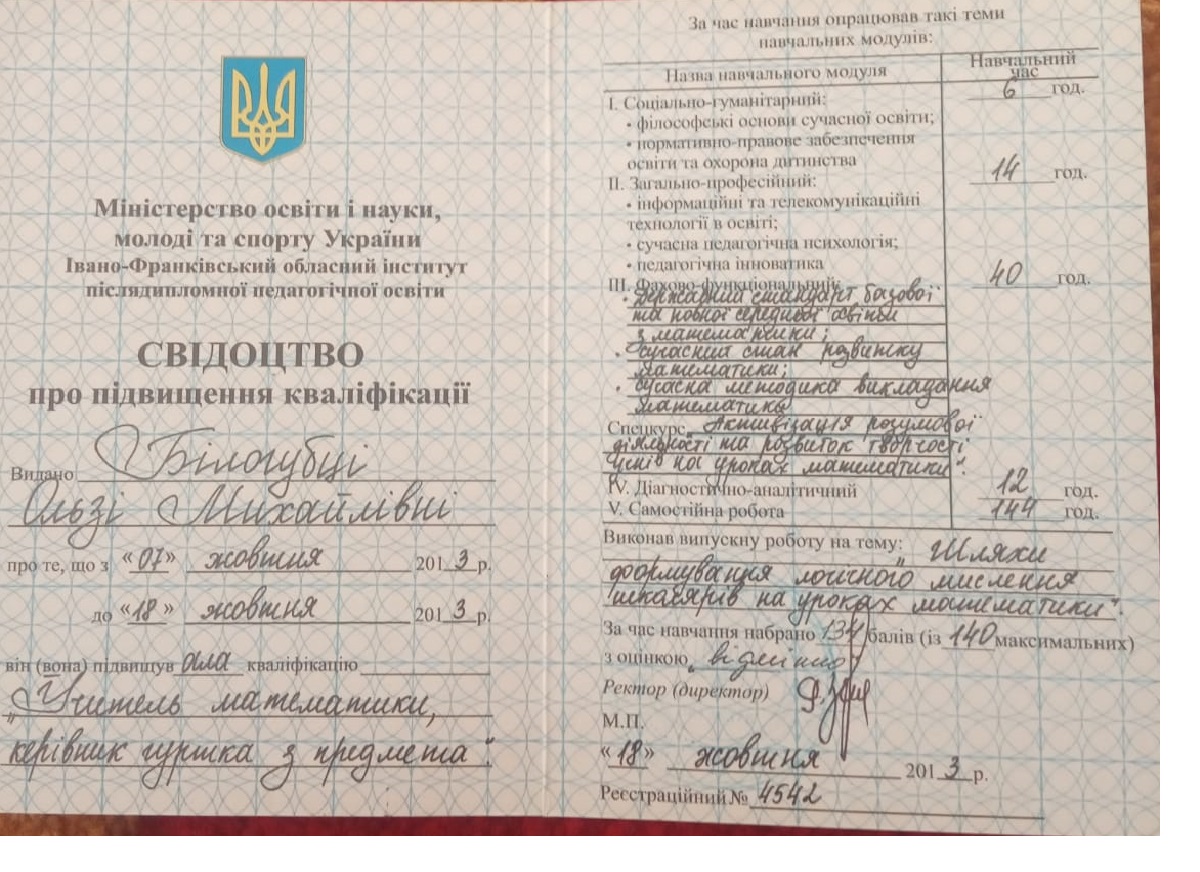 Міністерство освіти і науки,
молоді та спорту України
Івано-Франківський обласний інститут
післядипломної педагогічної освіти
СВІДОЦТВО
про підвищення кваліфікації
Видано Білогубці
Ользі Михайлівні
про те, що з «07» жовтня 2013 р.
до «18» жовтня 2013 р.
він (вона) підвищув ала кваліфікацію
„Учитель математики,
керівник гуртка з предмета“.
За час навчання опрацював такі теми
навчальних модулів:
Назва навчального модуля Навчальний
час
І. Соціально-гуманітарний: 6 год.
• філософські основи сучасної освіти;
• нормативно-правове забезпечення
освіти та охорона дитинства
ІІ. Загально-професійний: 14 год.
• інформаційні та телекомунікаційні
технології в освіті;
• сучасна педагогічна психологія;
• педагогічна інноватика
ІІІ. Фахово-функціональний: 40 год.
• Державний стандарт базової
та повної середньої освіти
з математики;
• сучасний стан розвитку
математики;
• сучасна методика викладання
математики
Спецкурс „Активізація розумової
діяльності та розвиток творчості
учнів на уроках математики“.
IV. Діагностично-аналітичний 12 год.
V. Самостійна робота 144 год.
Виконав випускну роботу на тему: „Шляхи
формування логічного мислення
школярів на уроках математики“.
За час навчання набрано 134 балів (із 140 максимальних)
з оцінкою „відмінно“
Ректор (директор)
М.П.
«18» жовтня 2013 р.
Реєстраційний № 4542